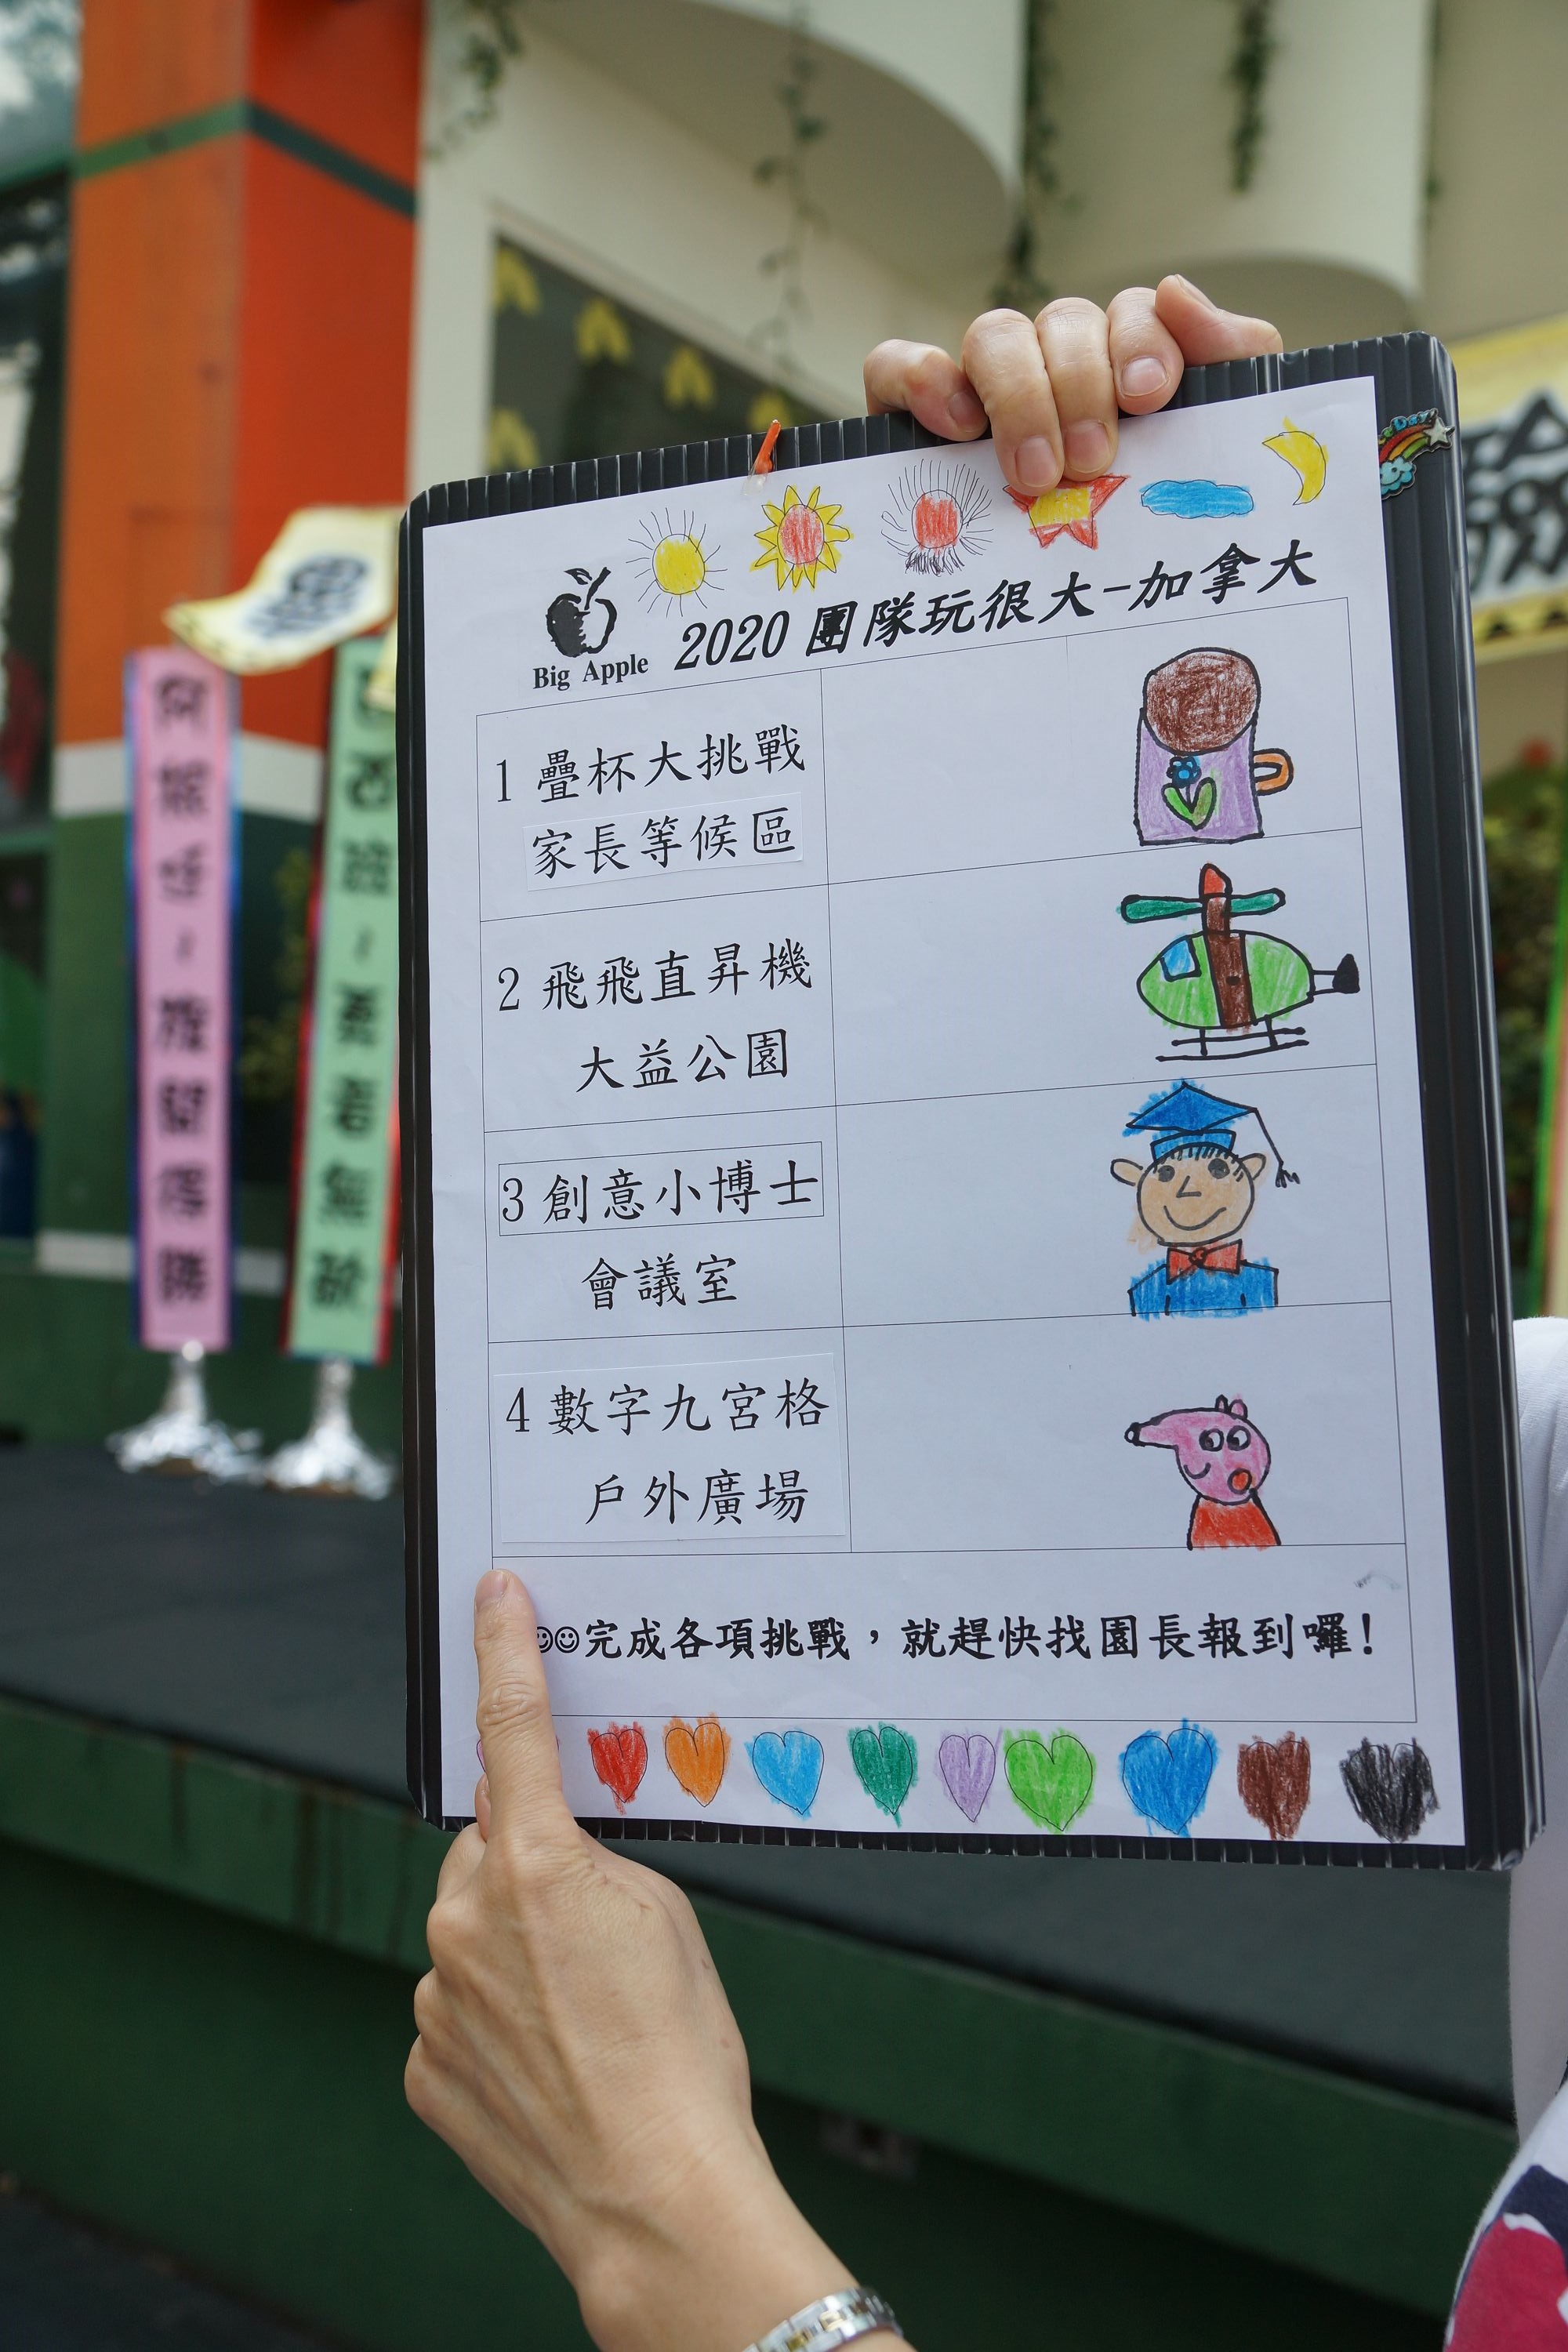 Big Apple
2020 團隊玩很大-加拿大
1 疊杯大挑戰
家長等候區
2 飛飛直昇機
大益公園
3 創意小博士
會議室
4 數字九宮格
戶外廣場
☺☺完成各項挑戰，就趕快找園長報到囉!